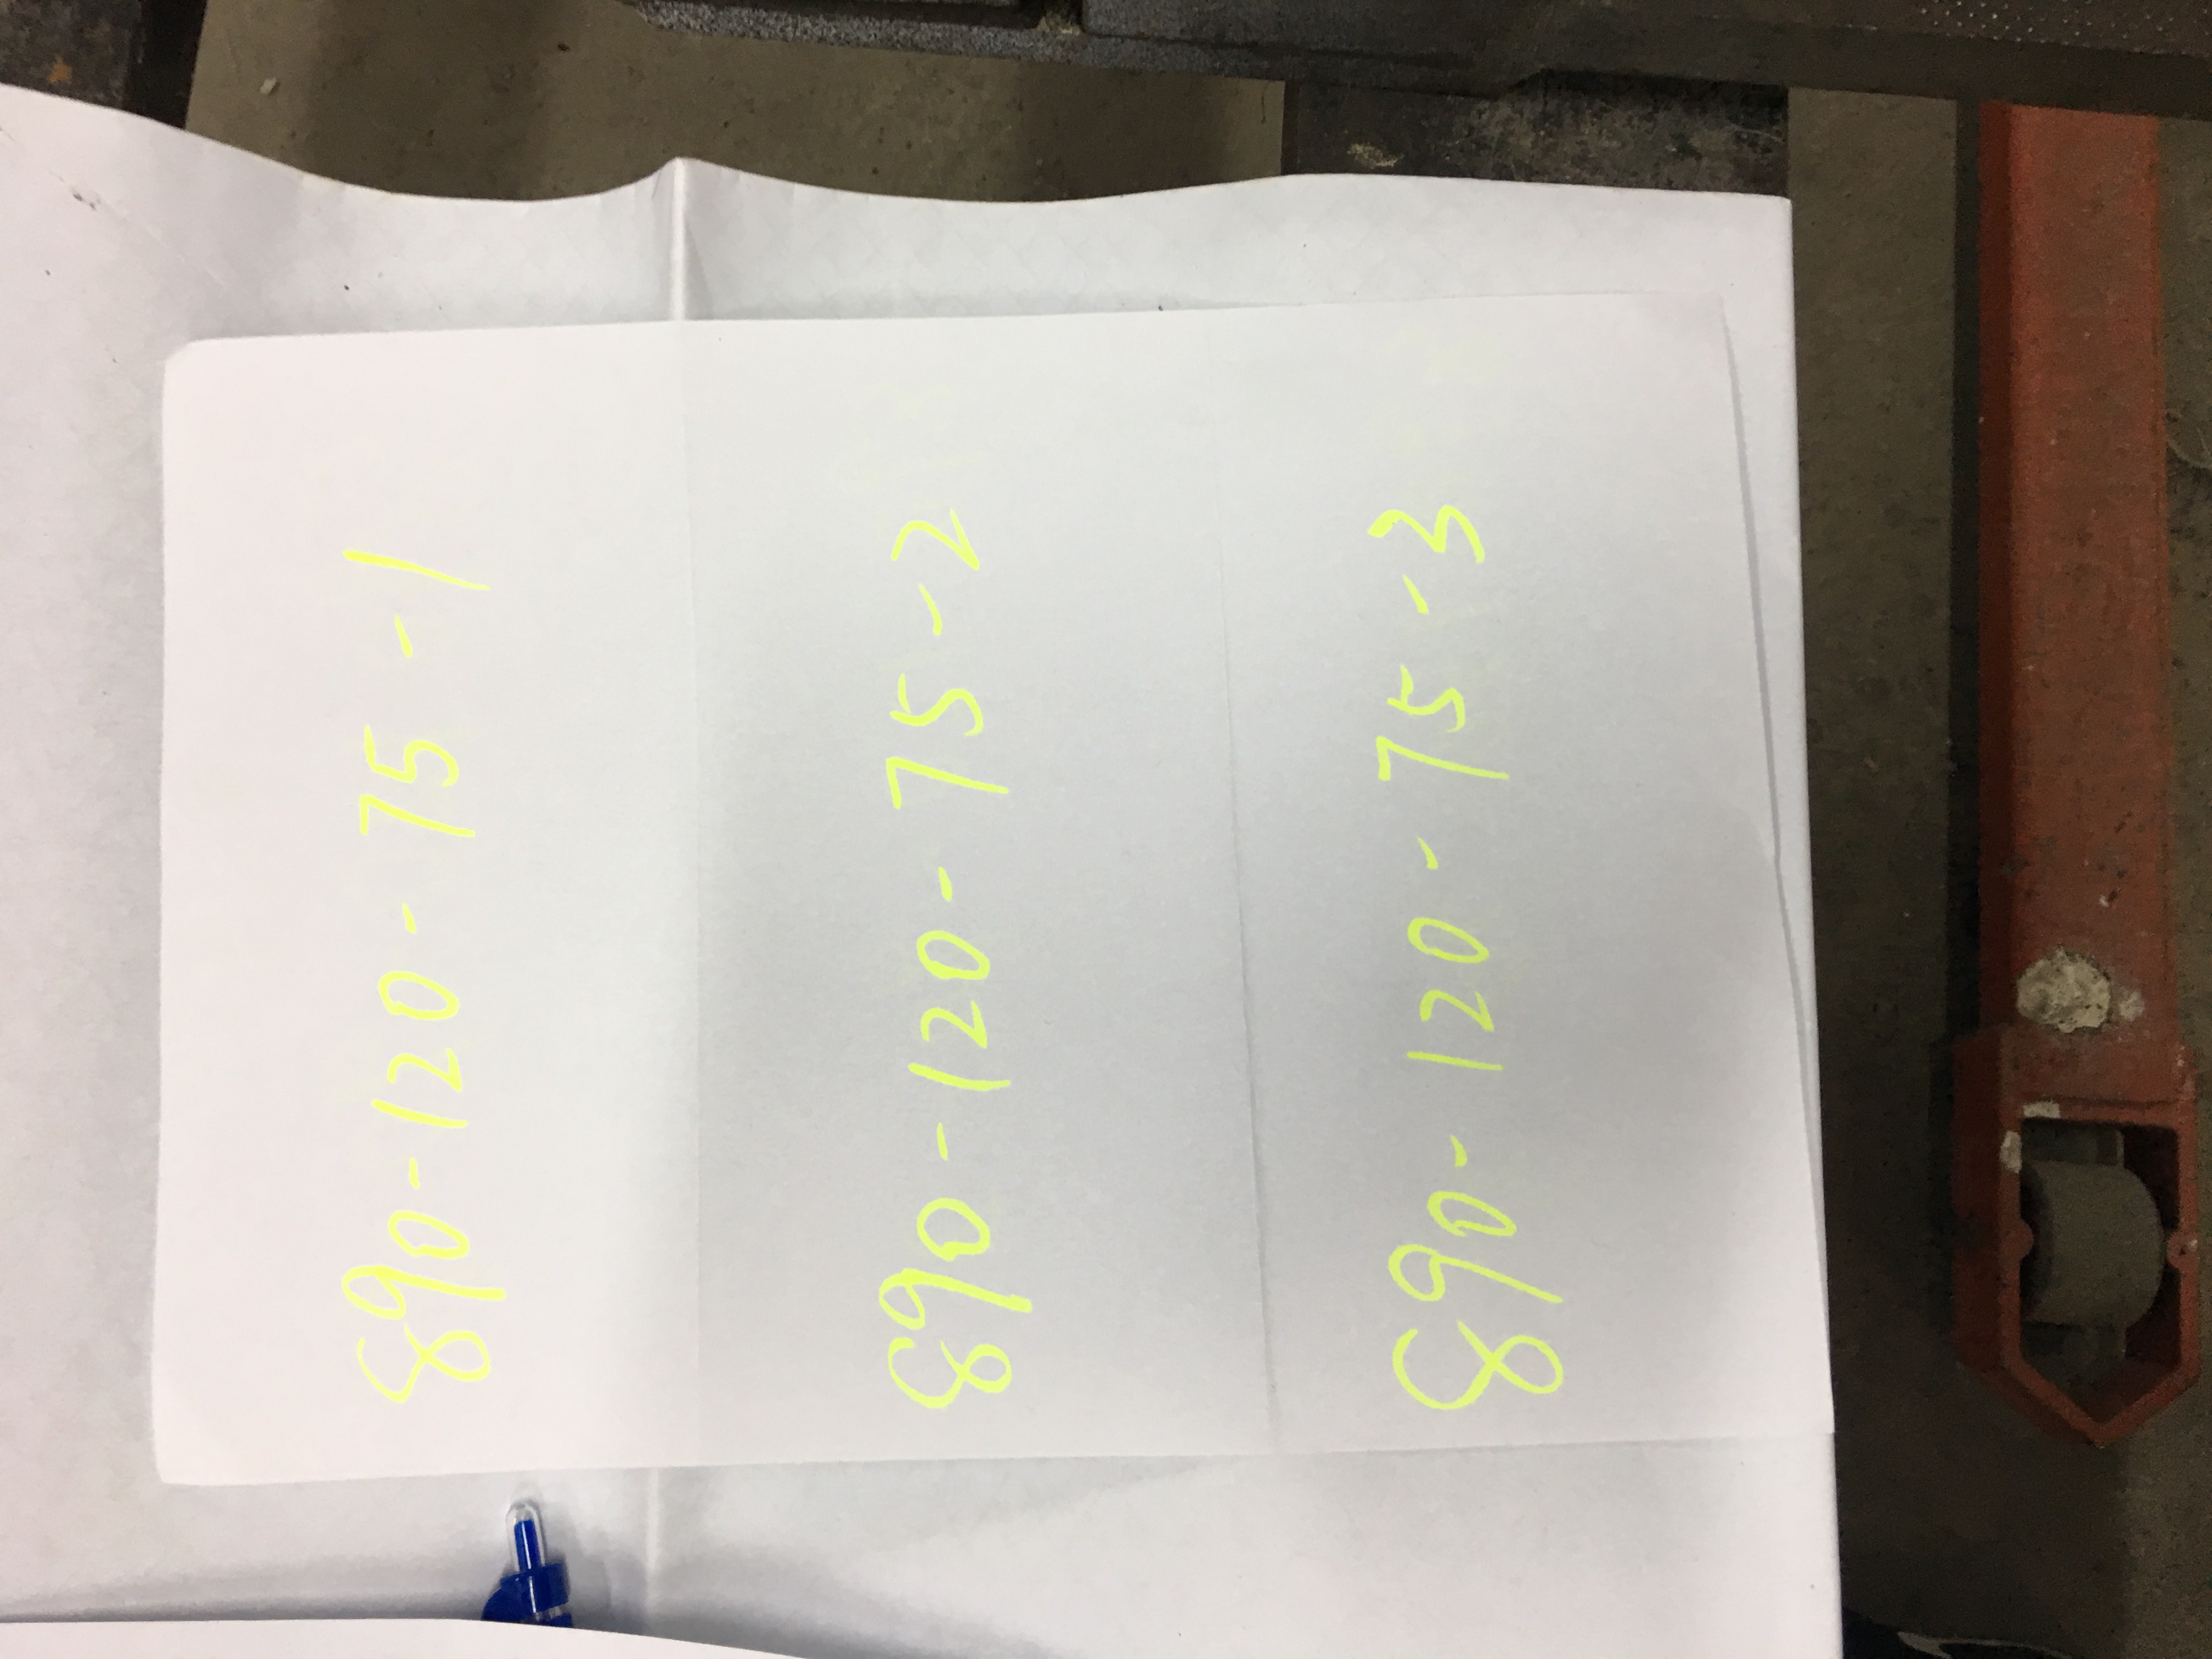 890-120-75-1
890-120-75-2
890-120-75-3